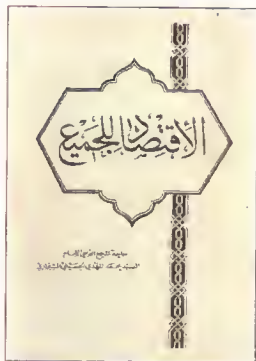 الاقتصاد للجميع
سماحة المرجع الديني الإمام
السيد محمد المهدي الحسيني الشيرازي